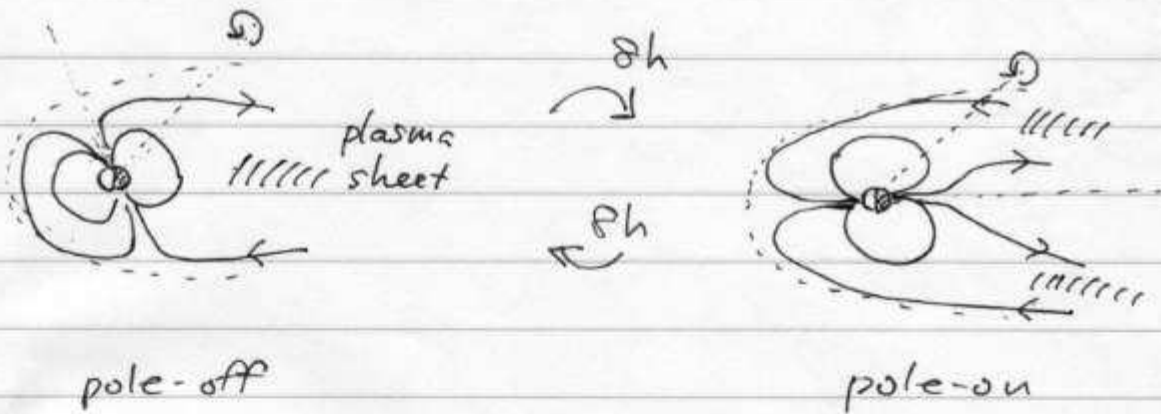 8h
plasma
sheet
8h
pole-off
pole-on